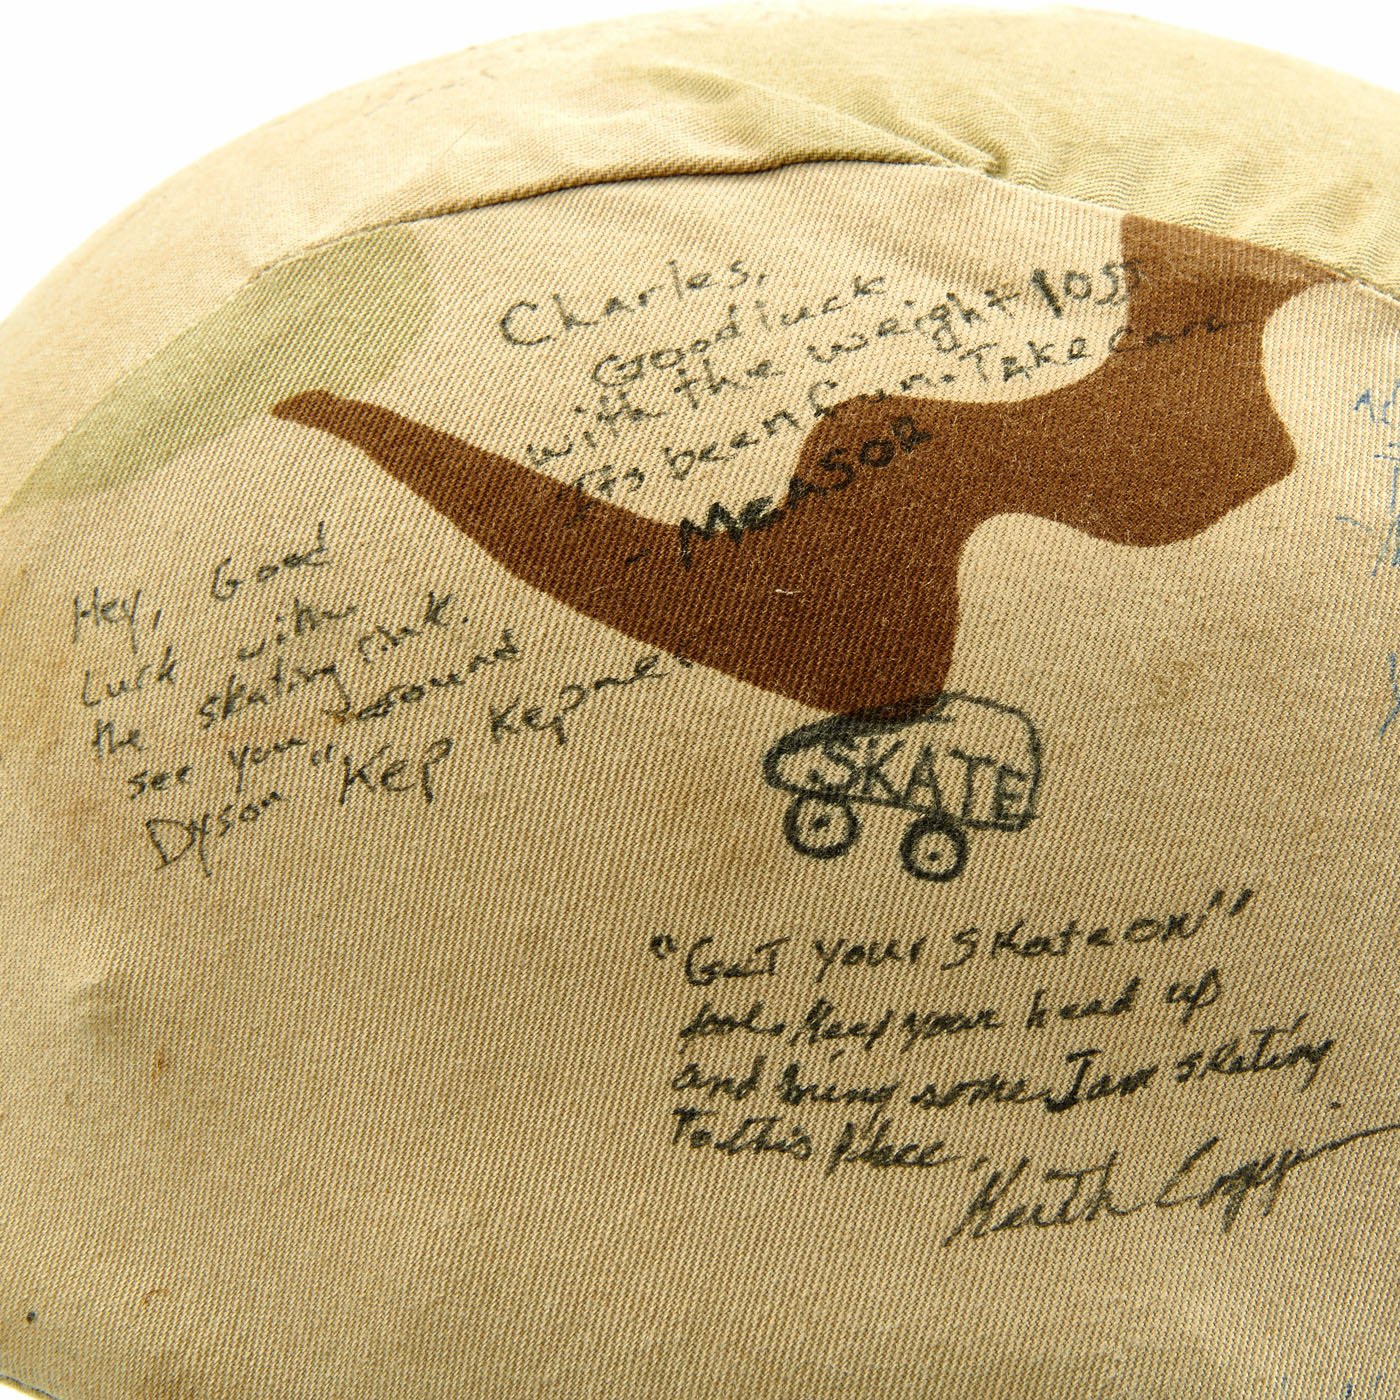 Charles,
Good luck
with the weight lost
It's been fun. Take Care
- Measor
Hey, Good
Luck with
the skating rink.
see you around
Dyson "Kep Kepner
SKATE
"Get your skate on"
fool. Keep your head up
and bring some Jam skating
To this place,
Keith